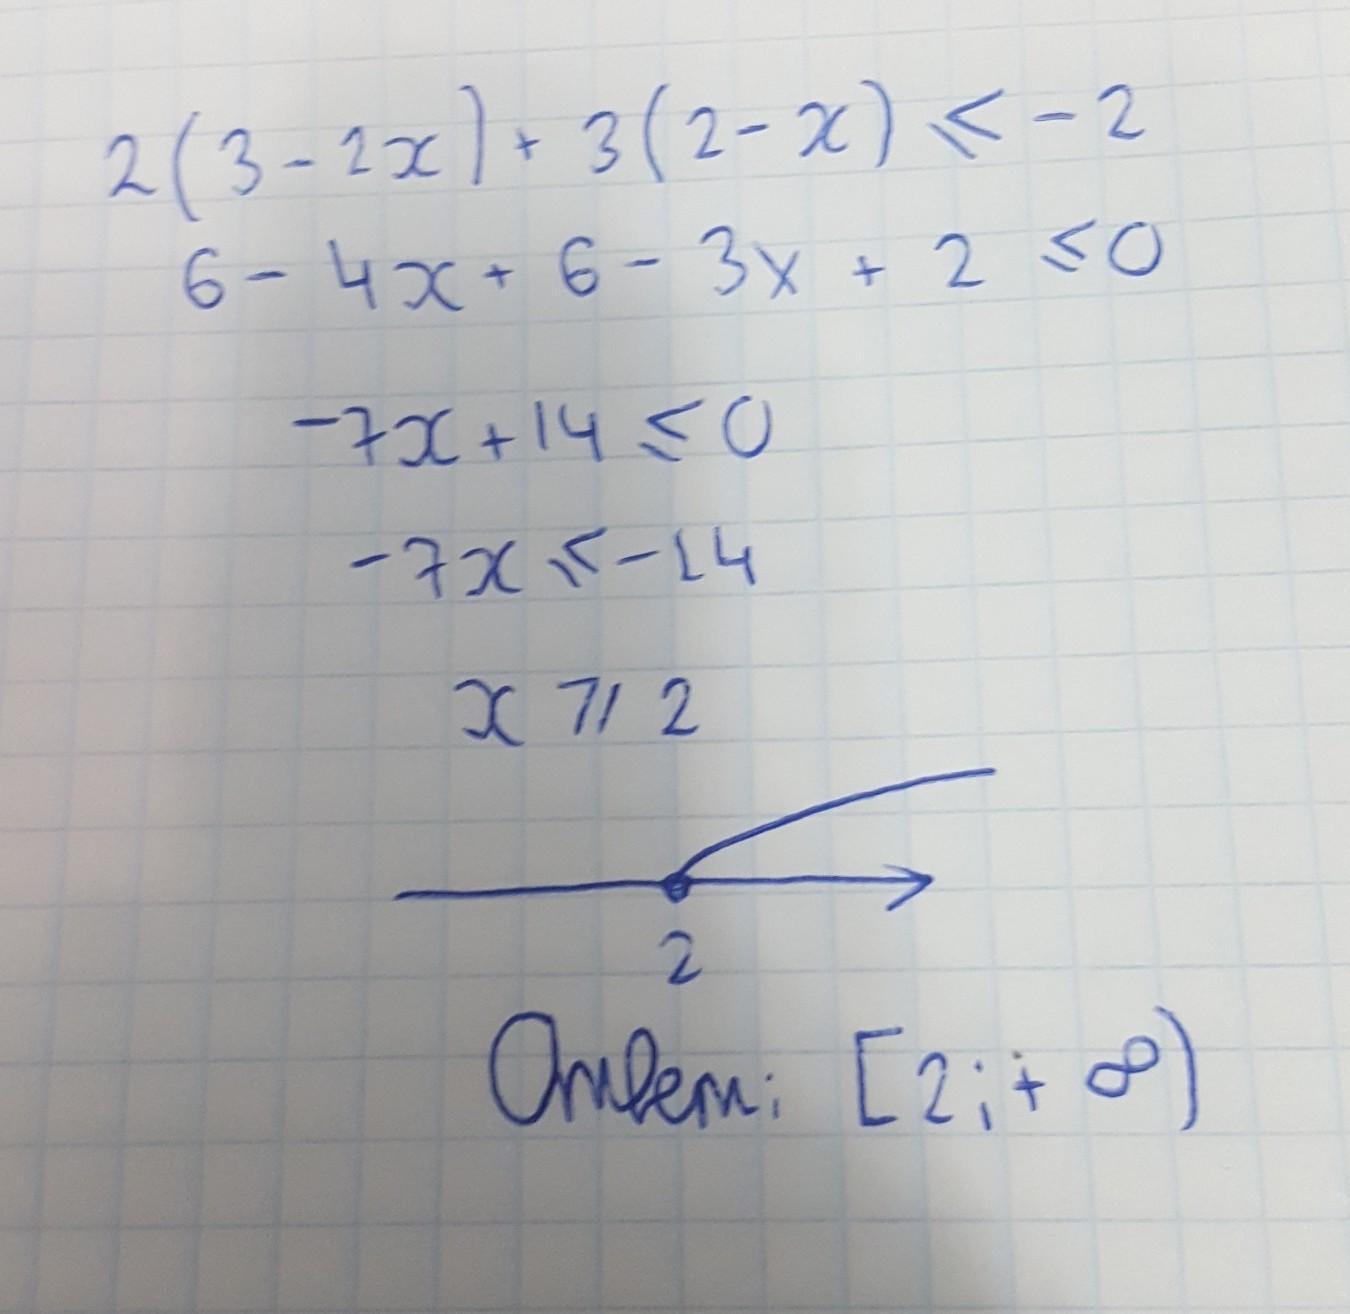 2(3-2x)+3(2-x)⩽-2
6-4x+6-3x+2⩽0
-7x+14⩽0
-7x⩽-14
x⩾2
2
Ответ: [2;+∞)